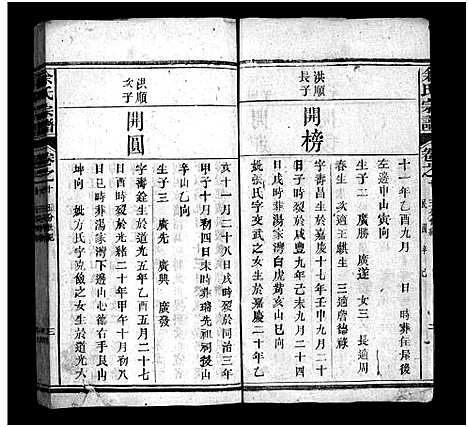 余氏宗譜
卷之十
十一年乙酉九月 日 時葬住屋後
左邊甲山寅向
生子二 廣勝 廣遂 女三 長適周
春生 二次適王麒生 三適詹德祿
洪順長子
開榜
字 於嘉慶十七年壬申九月二十
日子時歿於咸豐九年己未九月二十四
日戌時葬湯家灣白虎黃亥山巳向
妣張氏字交武之女生於嘉慶二十年乙
亥十一月二十八日戌時歿於同治三年
甲子十月初四日未時葬瑞先祖祠後山
辛山乙向
生子三 廣先 廣興 廣發
洪順次子
開圓
字壽銓生於道光五年乙酉五月二十七
日酉時歿於光緒二十年甲午十月初八
日巳時葬湯家灣下邊山心德右手艮山
坤向
妣方氏字克儉之女生於道光六
余氏宗譜
卷之十
三